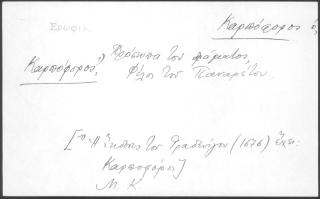 Ερωφίλ
Καρπόφορος ὁ,
Καρπόφορος, ὁ, Πρόσωπα του δράματος,
Φίλος του Πανάρετου.
[Ἡ Ἔκδοσις του Γραδενίγου (1676) ἔχει:
Καρποφόρος]
Μ. Κ